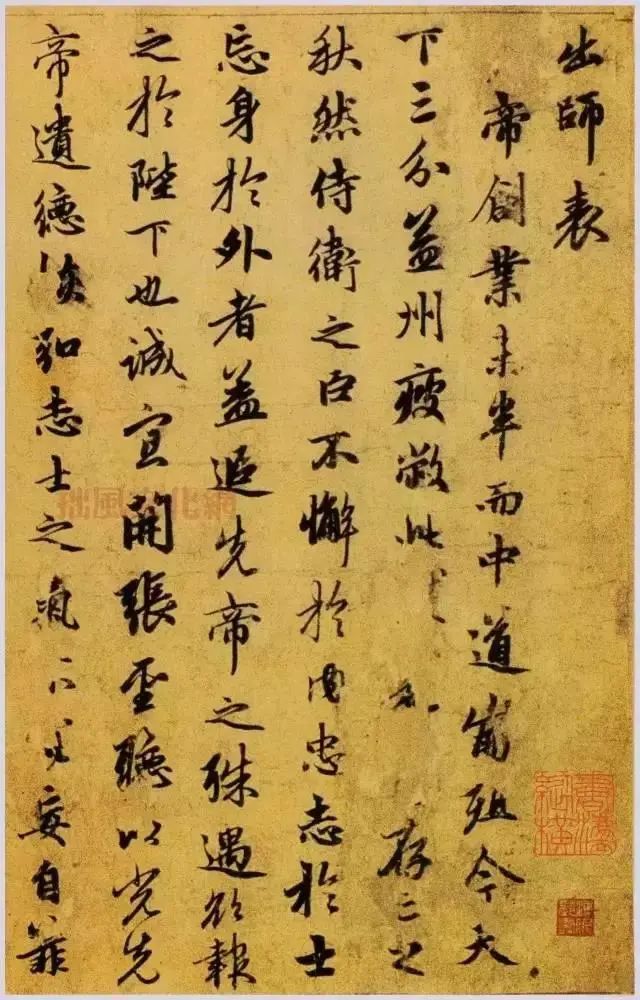 出師表
帝創業未半而中道崩殂今天
下三分益州疲敝此存之
秋然侍衛之臣不懈於内忠志於士
忘身於外者蓋追先帝之殊遇欲報
之於陛下也誠宜開張聖聽以光先
帝遺德恢弘志士之氣不宜妄自菲
拙風文化網